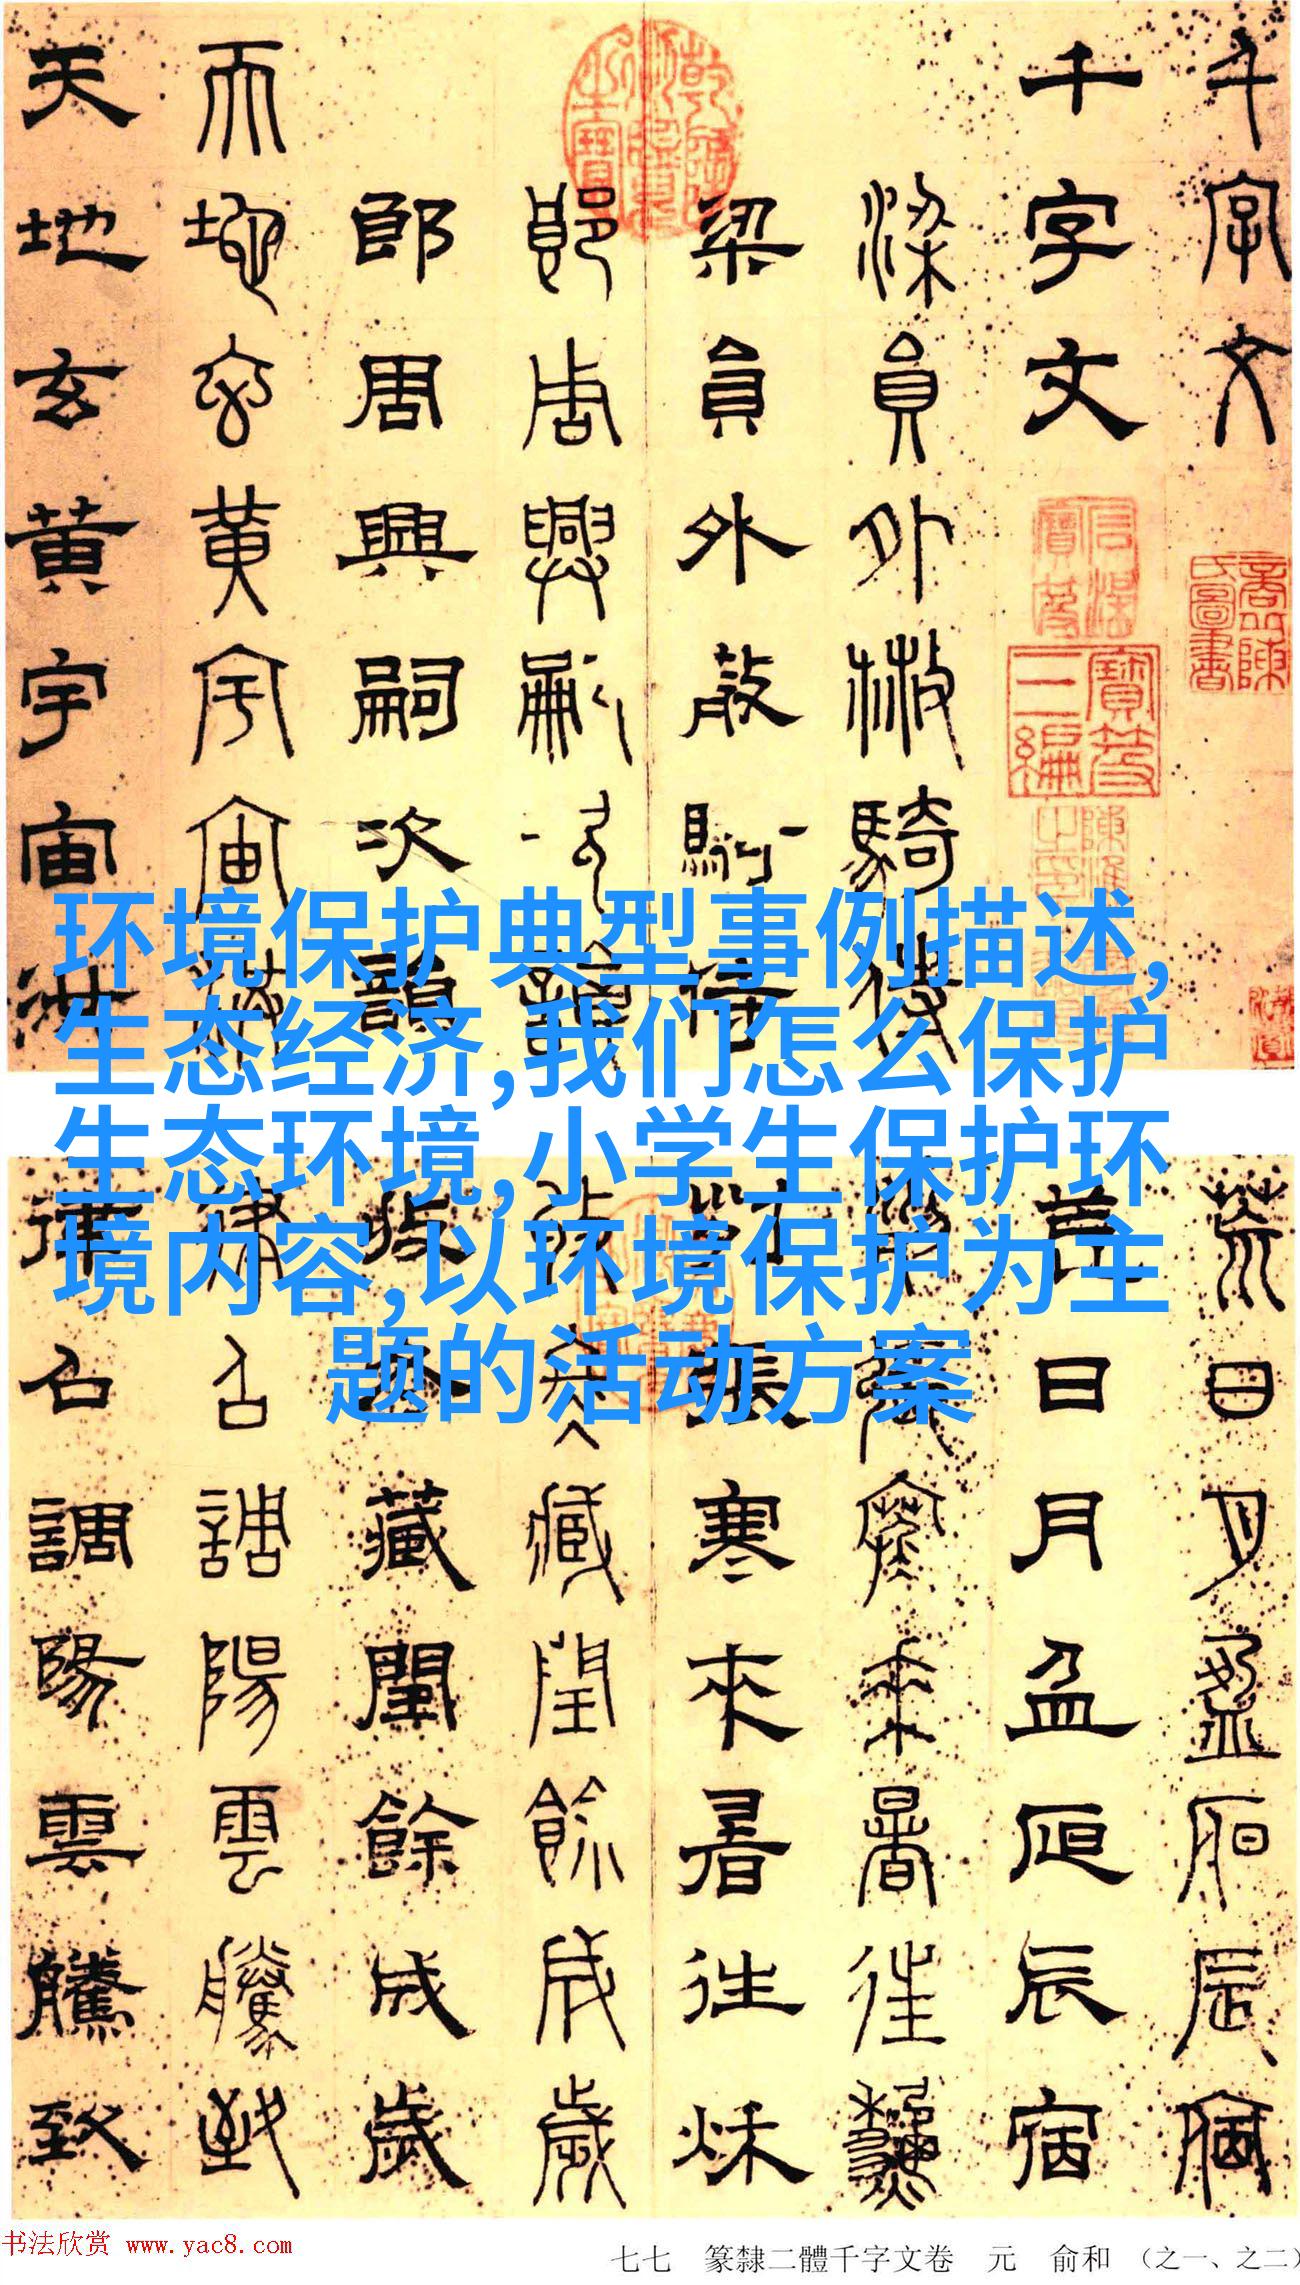 千字文
千字文
梁員外散騎侍
梁員外散騎侍
郎周興嗣次韻
郎周興嗣次韻
天地玄黃宇宙洪
天地玄黃宇宙洪
寶笈三編
环境保护典型事例描述,
生态经济,我们怎么保护
生态环境,小学生保护环
境内容,以环境保护为主
题的活动方案
荒日月盈昃辰宿
荒日月盈昃辰宿
列張寒來暑往秋
列張寒來暑往秋
收冬藏閏餘成歲
收冬藏閏餘成歲
律呂調陽雲騰致
律呂調陽雲騰致
书法欣赏 www.yac8.com
七七 篆隸二體千字文卷 元 俞和 (之一、之二)